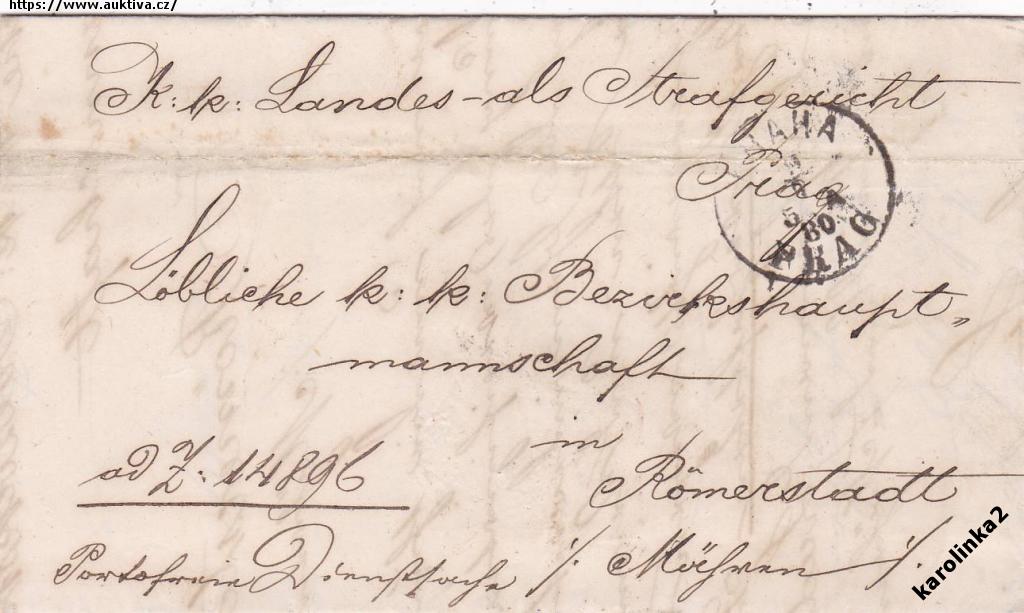 https://www.auktiva.cz/
K: k: Landes-als Strafgericht
Prag
PRAHA
5
80
PRAG
Löbliche k: k: Bezirkshaupt„
mannschaft
in
ad Z: 14896
Römerstadt
Portofreie Dienstsache ·/. Mähren ·/.
karolinka2